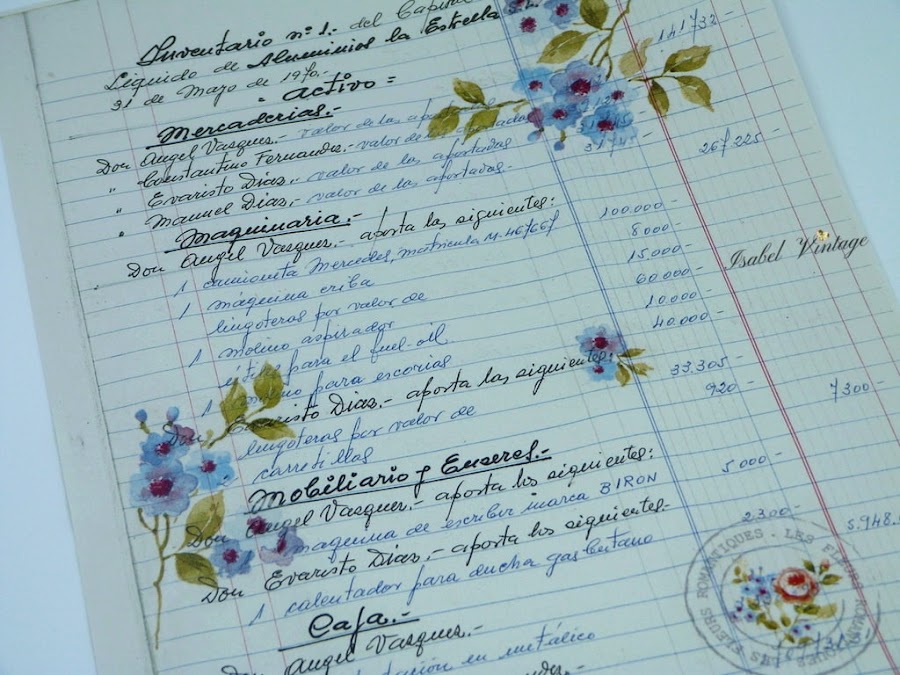 Inventario nº 1.- del Capital
Líquido de Aluminios la Estrella S.L.
31 de Mayo de 1970.-
- Activo =
Mercaderias.- 141732-
Don Angel Vasquez.- valor de las aportadas
" Constantino Fernandez.- valor de las aportadas
" Evaristo Diaz.- valor de las aportadas
" Manuel Diaz.- valor de las aportadas.- 267225-
Maquinaria.-
Don Angel Vasquez.- aporta las siguientes:
1 camioneta Mercedes, matricula M-467667 100.000-
1 máquina criba 8000-
lingoteras por valor de 15.000-
1 molino aspirador 60.000-
útiles para el fuel-oil. 10.000-
1 para escorias 40.000-
Don Evaristo Diaz.- aporta las siguientes:
lingoteras por valor de 33.305-
carretillas 920- 7300-
Mobiliario y Enseres.-
Don Angel Vasquez.- aporta los siguientes:
maquina de escribir marca BIRON 5.000-
Don Evaristo Diaz.- aporta los siguientes.-
1 calentador para ducha gas butano 2300- 5.948.
Caja.-
Don Angel Vasquez.-
en metálico
Isabel Vintage
LES FLEURS ROMANTIQUES . LES FLEURS ROMANTIQUES